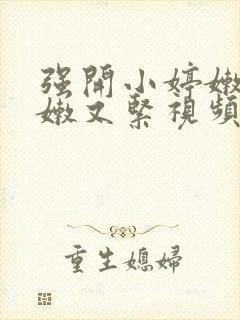 强開小婷嫩
嫩又緊視頻
重生媳婦